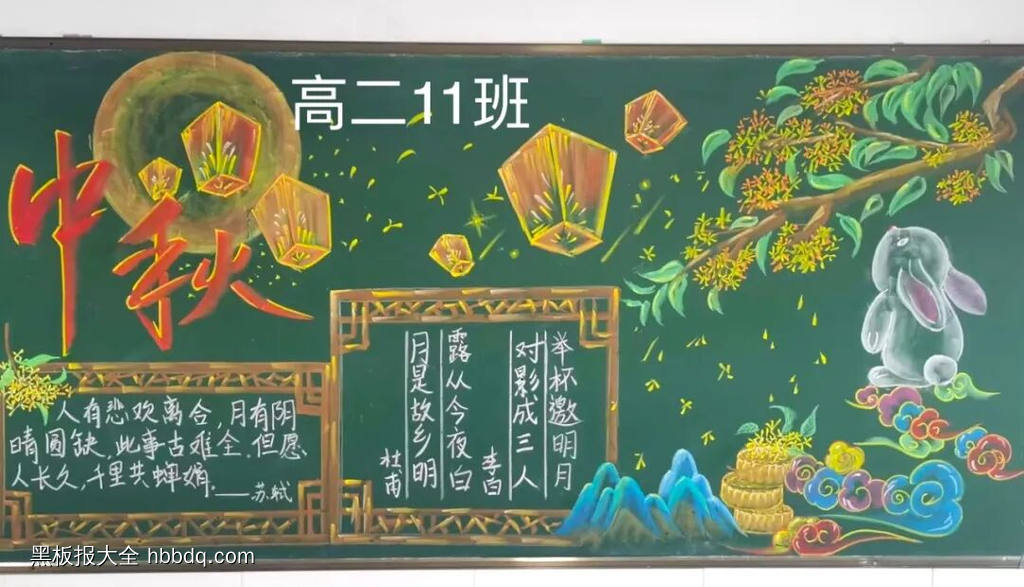 高二11班
中秋
人有悲欢离合,月有阴
晴圆缺,此事古难全.但愿
人长久,千里共蝉娟.——苏轼
举杯邀明月
对影成三人
李白
露从今夜白
月是故乡明
杜甫
黑板报大全 hbbdq.com